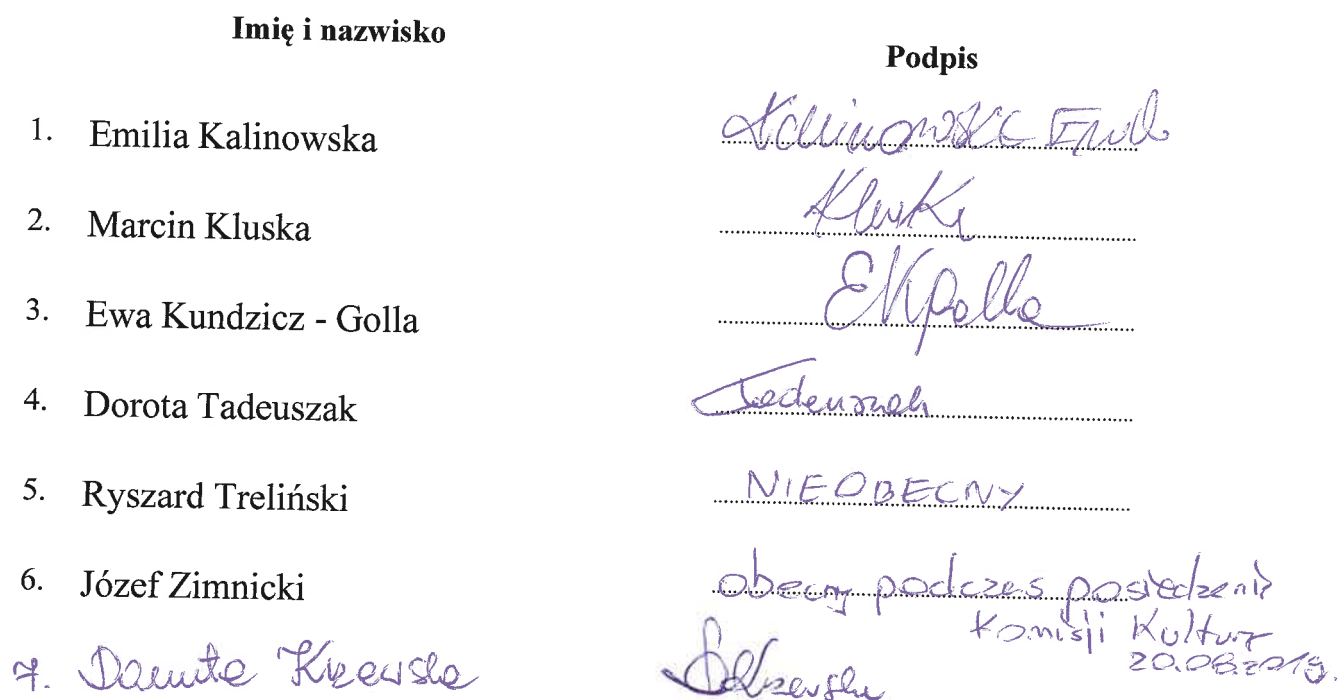 Imię i nazwisko
Podpis
1. Emilia Kalinowska Kalinowska Emil
2. Marcin Kluska Kluska
3. Ewa Kundzicz - Golla EKGolla
4. Dorota Tadeuszak Tadeuszak
5. Ryszard Treliński NIEOBECNY
6. Józef Zimnicki obecny podczas posiedzenia
Komisji Kultury
20.08.2019.
7. Danuta